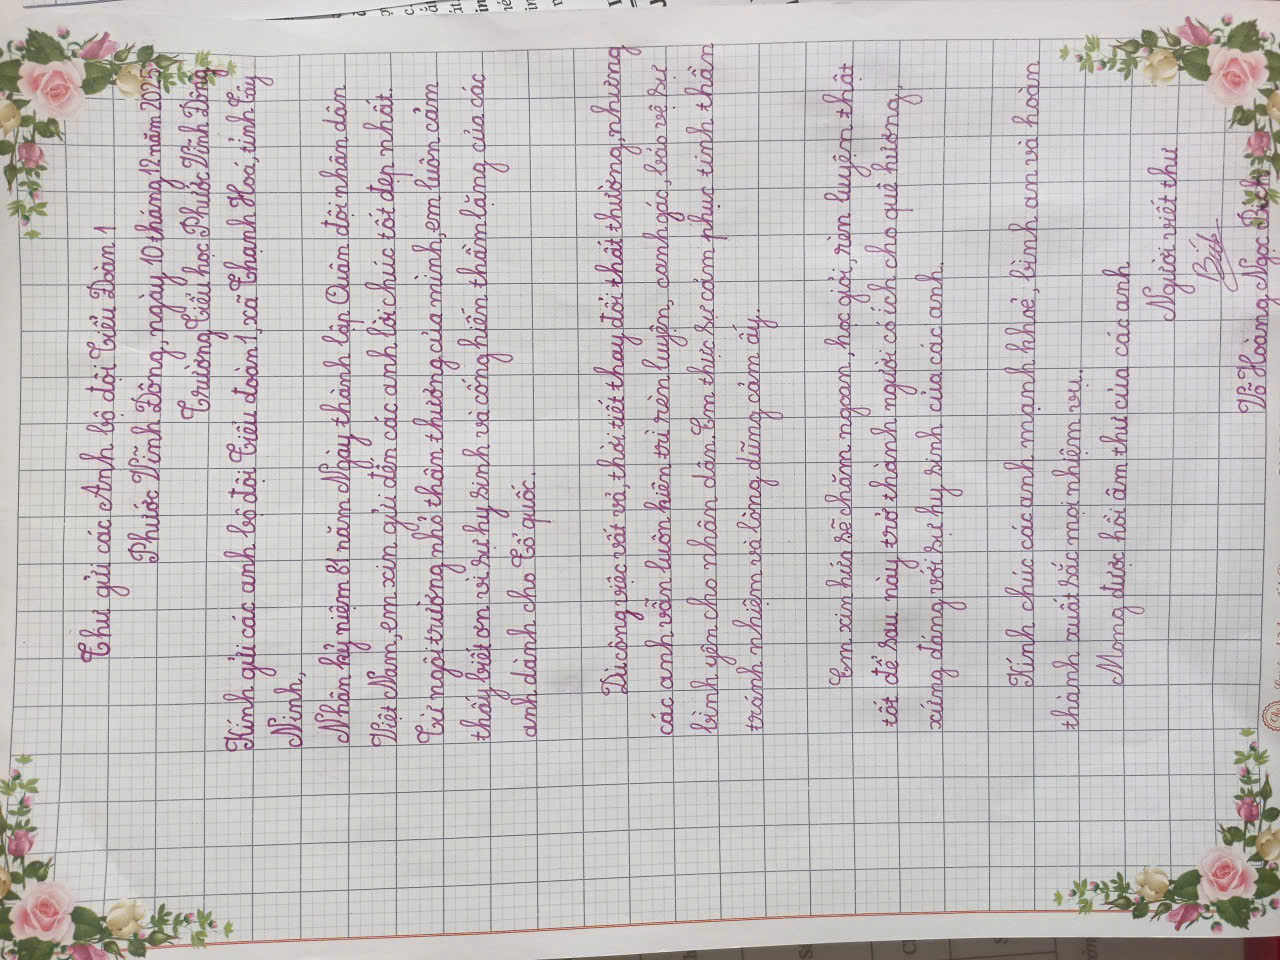 Thư gửi các Anh bộ đội Tiểu Đoàn 1
Phước Vĩnh Đông, ngày 10 tháng 12 năm 2025
Trường Tiểu học Phước Vĩnh Đông
Kính gửi các anh bộ đội Tiểu đoàn 1, xã Thạnh Hoá, tỉnh Tây
Ninh,
Nhân kỷ niệm 81 năm Ngày thành lập Quân đội nhân dân
Việt Nam, em xin gửi đến các anh lời chúc tốt đẹp nhất.
Từ ngôi trường nhỏ thân thương của mình, em luôn cảm
thấy biết ơn vì sự hy sinh và cống hiến thầm lặng của các
anh dành cho Tổ quốc.
Dù công việc vất vả, thời tiết thay đổi thất thường, nhưng
các anh vẫn luôn kiên trì rèn luyện, canh gác, bảo vệ sự
bình yên cho nhân dân. Em thực sự cảm phục tinh thần
tránh nhiệm và lòng dũng cảm ấy.
Em xin hứa sẽ chăm ngoan, học giỏi, rèn luyện thật
tốt để sau này trở thành người có ích cho quê hương,
xứng đáng với sự hy sinh của các anh.
Kính chúc các anh mạnh khoẻ, bình an và hoàn
thành xuất sắc mọi nhiệm vụ.
Mong được hồi âm thư của các anh
Người viết thư
Bích
Võ Hoàng Ngọc Bích